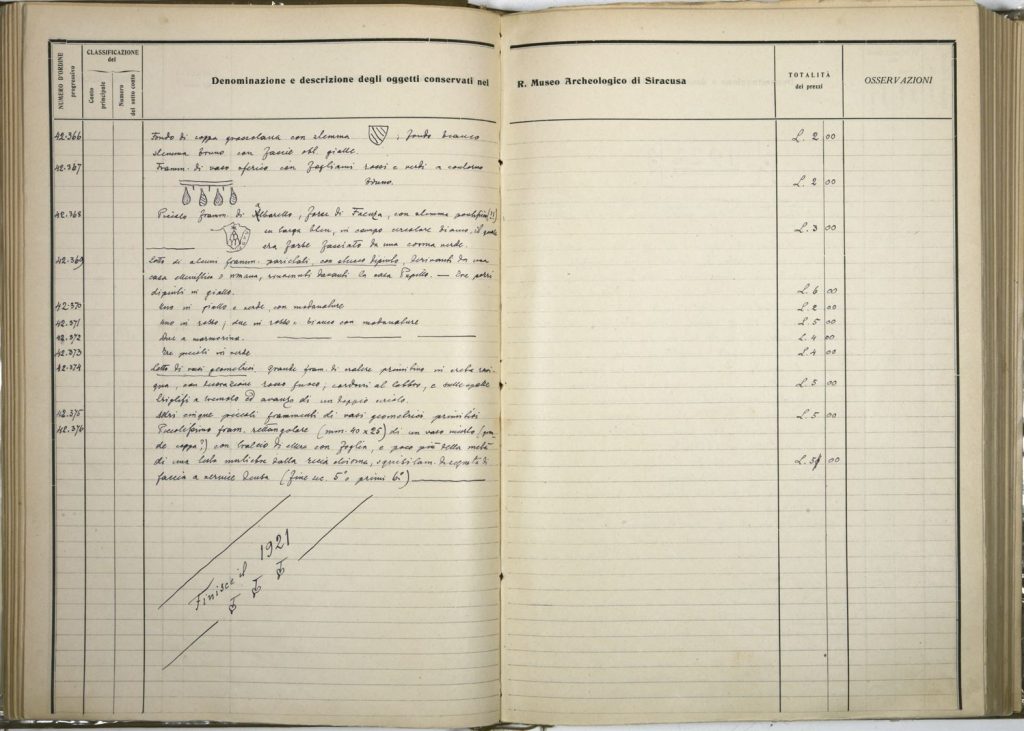 NUMERO D'ORDINE progressivo
CLASSIFICAZIONE del
Conto principale
Numero del sotto conto
Denominazione e descrizione degli oggetti conservati nel R. Museo Archeologico di Siracusa
TOTALITÀ dei prezzi
OSSERVAZIONI
42.366 Fondo di coppa grossolana con stemma ; fondo bianco
stemma bruno con fascie obl. gialle. L. 2 00
42.367 Framm. di vaso sferico con fogliami rossi e verdi a contorno
bruno. L. 2 00
42.368 Piccolo framm. di Albarello, forse di Faenza, con stemma
in targa bleu, in campo circolare bianco, il quale L. 3 00
era forse fasciato da una corona verde.
42.369 Lotto di alcuni framm. parietali, con stucco dipinto, derivanti da una
casa ellenistica o romana, rinvenuti davanti la casa Pupillo. — Tre pezzi
dipinti in giallo. L. 6 00
42.370 Uno in giallo e verde, con modanature L. 2 00
42.371 Uno in rosso; due in rosso e bianco con modanature L. 5 00
42.372 Due a marmorino. L. 4 00
42.373 Tre piccoli in verde L. 4 00
42.374 Lotto di vasi geometrici, grande fram. di cratere primitivo in creta
con decorazione rosso fuoco; cordoni al labbro, e sulle spalle L. 5 00
triglifi a tremolo ed avanzo di un doppio circolo.
42.375 Altri cinque piccoli frammenti di vasi geometrici primitivi L. 5 00
42.376 Piccolissimo fram. rettangolare (mm. 40 x 25) di un vaso
coppa?) con tralcio di ellera con foglia, e poco più della metà
di una testa muliebre dalla ricca chioma, squisitam. disegnata di L. 00
faccia a vernice densa (fine sec. 5° o primi 4°)
Finisce il 1921